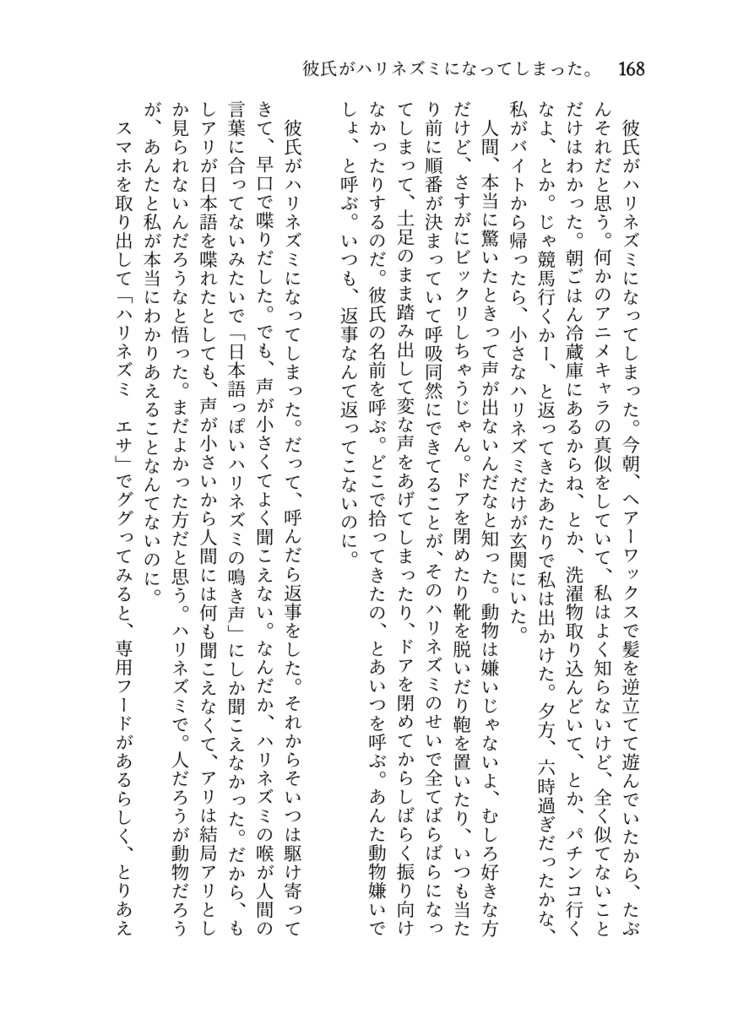 彼氏がハリネズミになってしまった。 168
彼氏がハリネズミになってしまった。今朝、ヘアーワックスで髪を逆立てて遊んでいたから、たぶ
んそれだと思う。何かのアニメキャラの真似をしていて、私はよく知らないけど、全く似てないこと
だけはわかった。朝ごはん冷蔵庫にあるからね、とか、洗濯物取り込んどいて、とか、パチンコ行く
なよ、とか。じゃ競馬行くかー、と返ってきたあたりで私は出かけた。夕方、六時過ぎだったかな、
私がバイトから帰ったら、小さなハリネズミだけが玄関にいた。
人間、本当に驚いたときって声が出ないんだなと知った。動物は嫌いじゃないよ、むしろ好きな方
だけど、さすがにビックリしちゃうじゃん。ドアを閉めたり靴を脱いだり鞄を置いたり、いつも当た
り前に順番が決まっていて呼吸同然にできてることが、そのハリネズミのせいで全てばらばらになっ
てしまって、土足のまま踏み出して変な声をあげてしまったり、ドアを閉めてからしばらく振り向け
なかったりするのだ。彼氏の名前を呼ぶ。どこで拾ってきたの、とあいつを呼ぶ。あんた動物嫌いで
しょ、と呼ぶ。いつも、返事なんて返ってこないのに。
彼氏がハリネズミになってしまった。だって、呼んだら返事をした。それからそいつは駆け寄って
きて、早口で喋りだした。でも、声が小さくてよく聞こえない。なんだか、ハリネズミの喉が人間の
言葉に合ってないみたいで「日本語っぽいハリネズミの鳴き声」にしか聞こえなかった。だから、も
しアリが日本語を喋れたとしても、声が小さいから人間には何も聞こえなくて、アリは結局アリとし
か見られないんだろうなと悟った。まだよかった方だと思う。ハリネズミで。人だろうが動物だろう
が、あんたと私が本当にわかりあえることなんてないのに。
スマホを取り出して「ハリネズミ　エサ」でググってみると、専用フードがあるらしく、とりあえ